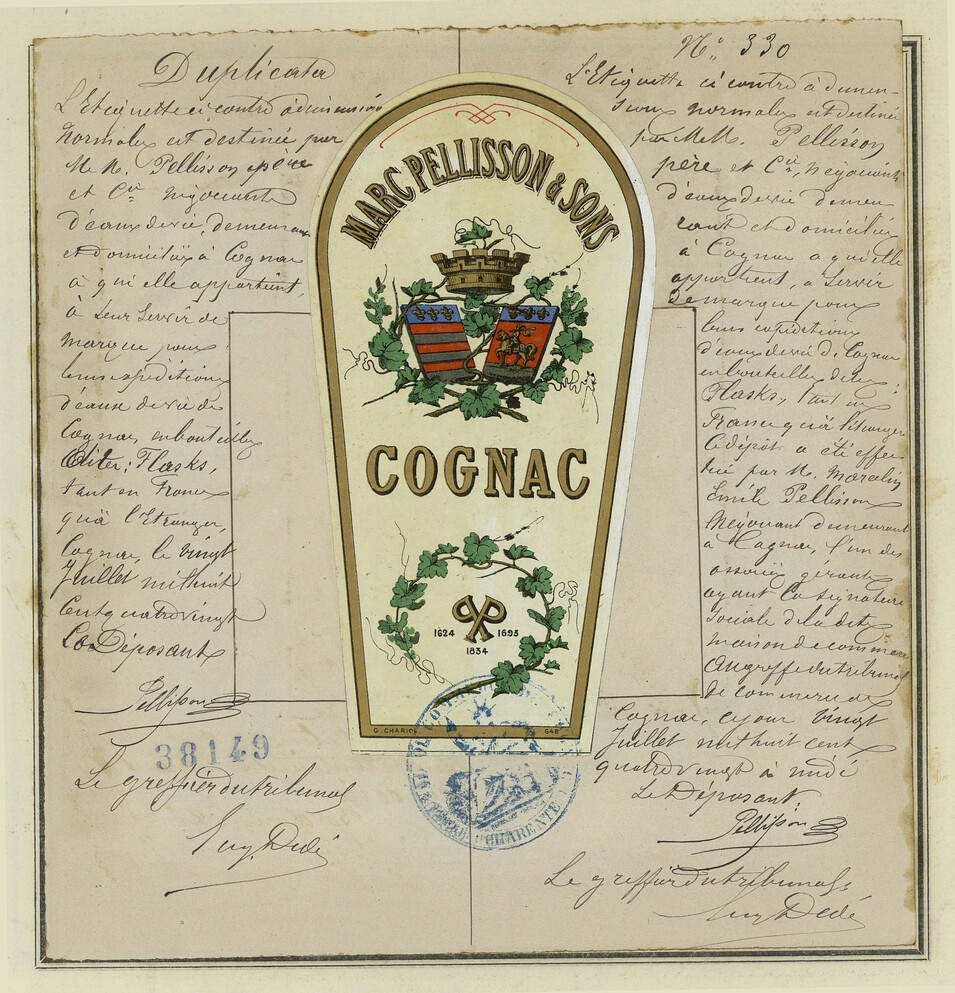 Duplicata
L'Etiquette ci contre a dimensions
Normales est destinée par
M.M. Pellisson père
et Cie négociants
d'eaux de vie, demeurant
et domiciliés à Cognac
à qui elle appartient,
à leur servir de
marque pour
leurs expéditions
d'eaux de vie de
Cognac, en bouteilles
Litre, Flasks,
tant en France
qu'à l'Etranger,
Cognac, le vingt
Juillet mil huit
cent quatre vingt
Le Déposant
Pellisson
38149
Le greffier du tribunal
Eug. Dedé
MARC PELLISSON & SONS
COGNAC
1624 1693
1834
G. CHARIOL 648
CHARENTE
No. 330
L'Etiquette ci contre à dimen-
sions normales est destinée
par M.M. Pellisson
père et Cie, négociants
d'eaux de vie demeu
rant et domiciliés
à Cognac a qui elle
appartient, a servir
de marque pour
leurs expéditions
d'eaux de vie de Cognac
en bouteilles
Flasks, tant en
France qu'à l'étranger
Ce dépôt a été effec
tué par M. Marcelin
Emile Pellisson
Négociant demeurant
à Cognac, l'un des
associés gérants
ayant la signature
sociale de la dite
maison de commerce
Au greffe du tribunal
de commerce de
Cognac, ce jour vingt
Juillet mil huit cent
quatre vingt à midi
Le Déposant:
Pellisson
Le greffier du tribunal
Eug Dedé